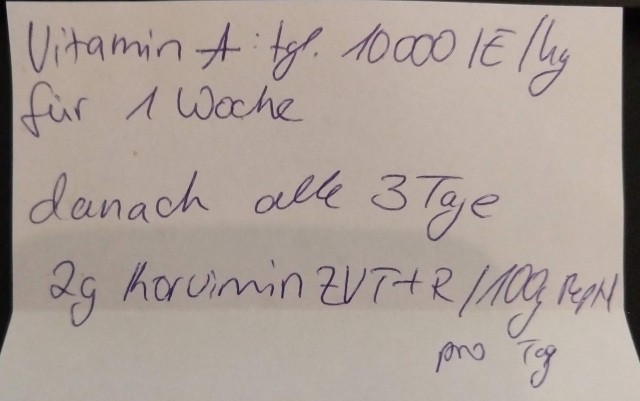 Vitamin A: tgl. 10000 IE/kg
für 1 Woche
danach alle 3 Tage
2g Korvimin ZVT+R /100g
pro Tag